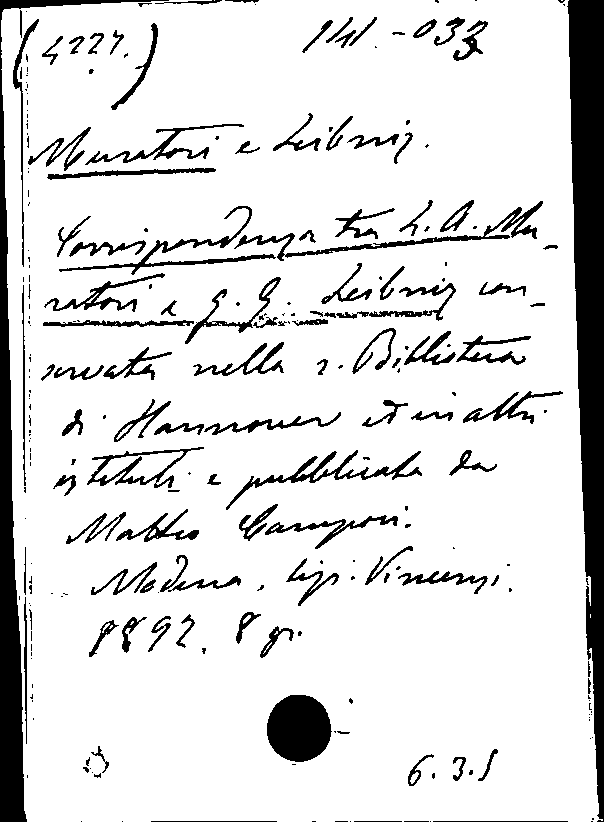 (4227.) 141.-033
Muratori e Leibniz.
Corrispondenza tra L. A. Mu-
ratori e G. G. Leibniz con-
servata nella r. Biblioteca
di Hannover ed in altri
istituti e pubblicata da
Matteo Campori.
Modena, tip. Vincenzi.
1892. 8 gr.
6.3.5